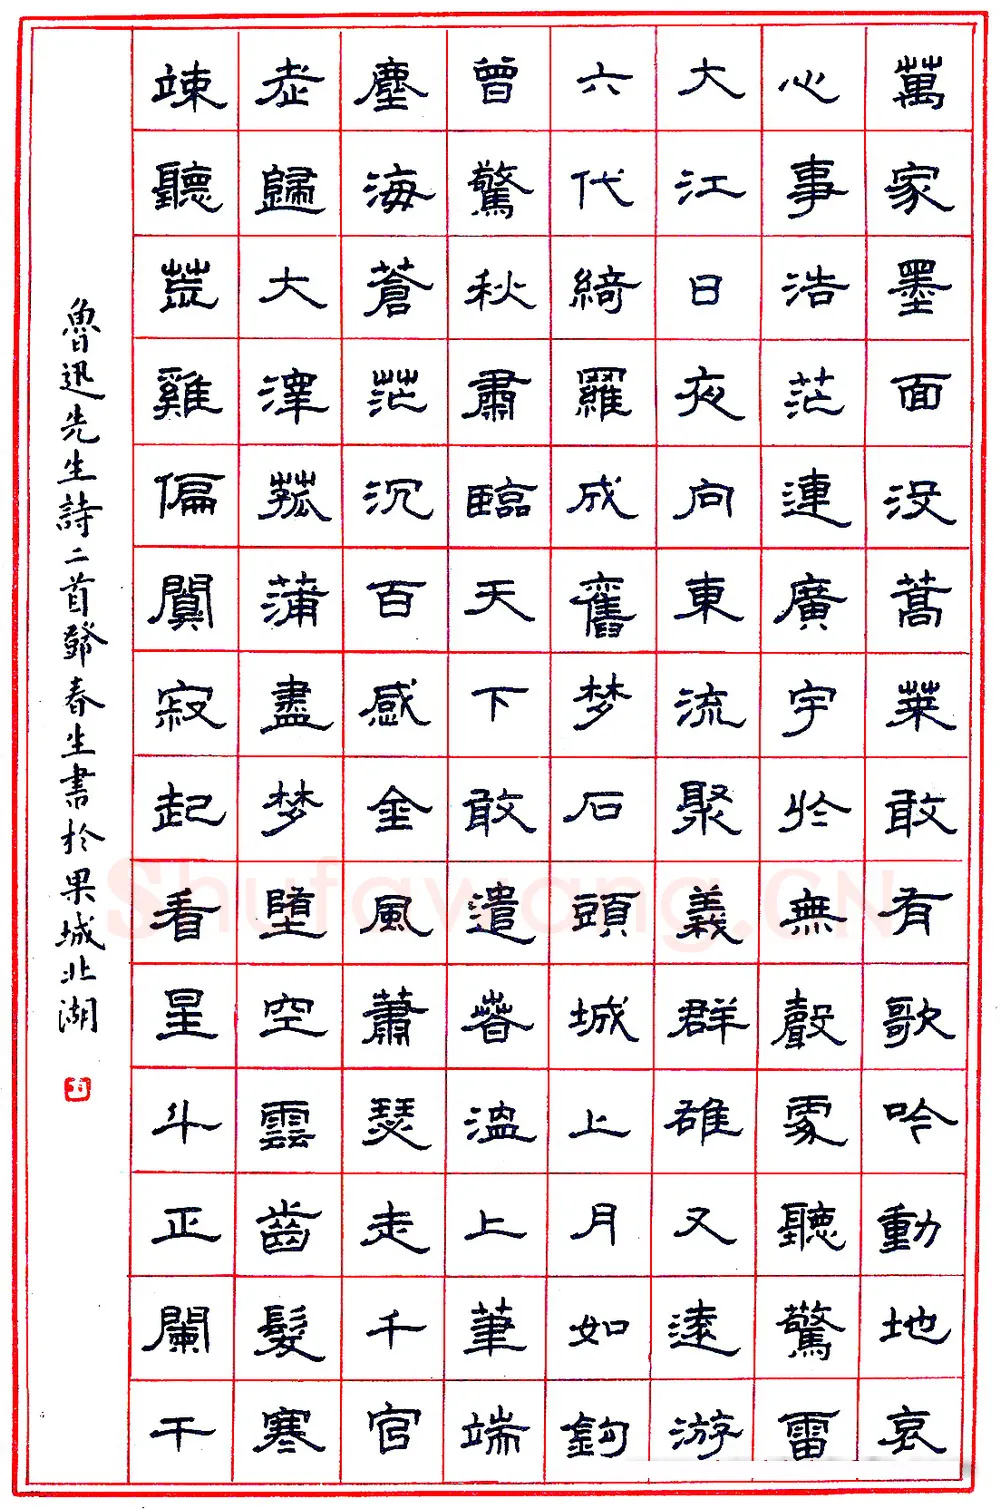 萬家墨面没蒿萊敢有歌吟動地哀
心事浩茫連廣宇於無聲處聽驚雷
大江日夜向東流聚義群雄又遠游
六代綺羅成舊梦石頭城上月如鈎
曾驚秋肅臨天下敢遣春溫上筆端
塵海蒼茫沉百感金風蕭瑟走千官
老歸大澤菰蒲盡梦墮空雲齒髮寒
竦聽荒雞偏闃寂起看星斗正闌干
魯迅先生詩二首鄧春生書於果城北湖
Shufawang.CN